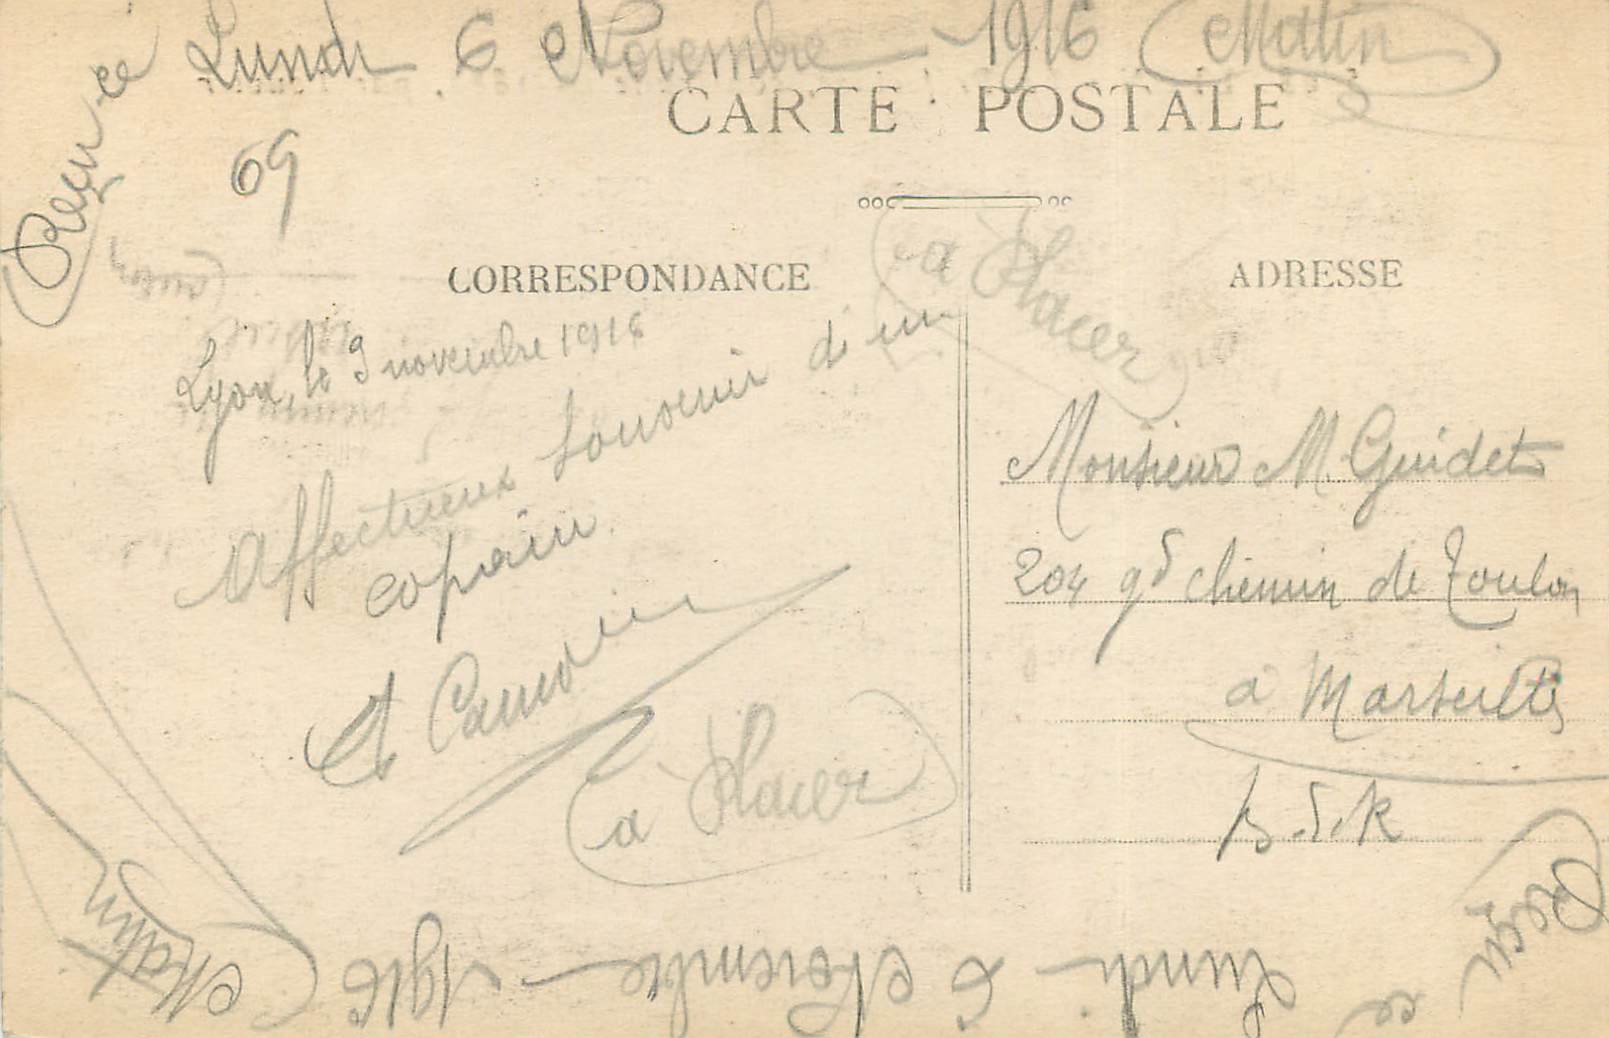 Reçu ce Lundi 6 Novembre 1916 Matin
CARTE POSTALE
69
CORRESPONDANCE
ADRESSE
à Placer
Lyon, le 3 novembre 1916
Affectueux souvenir d'un
copain
à Placer
Monsieur M Guidet
204 gd chemin de Toulon
à Marseille
B.d.R
Reçu ce Lundi 6 Novembre 1916 Matin